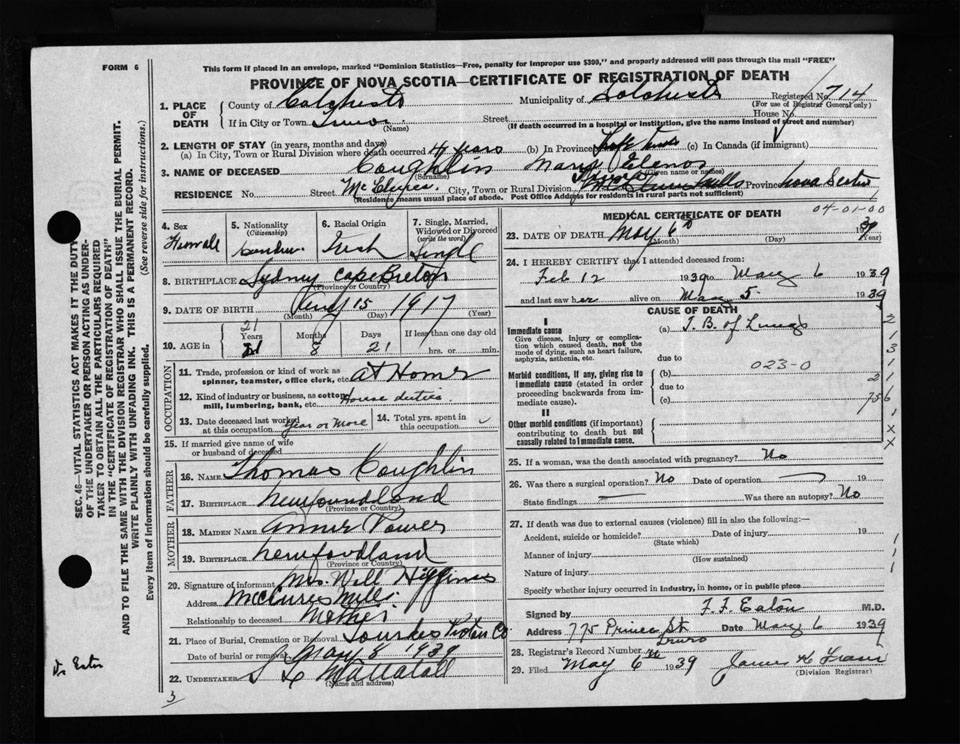 FORM 6
This form if placed in an envelope, marked "Dominion Statistics—Free, penalty for improper use $300," and properly addressed will pass through the mail "FREE"
PROVINCE OF NOVA SCOTIA—CERTIFICATE OF REGISTRATION OF DEATH
1. PLACE OF DEATH
County of Colchester Municipality of Colchester Registered No. 714
(For use of Registrar General only)
If in City or Town Truro (Name) Street House No.
(If death occurred in a hospital or institution, give the name instead of street and number)
2. LENGTH OF STAY (in years, months and days)
(a) In City, Town or Rural Division where death occurred 4 years (b) In Province Life time (c) In Canada (if immigrant)
3. NAME OF DECEASED Coughlin Mary
(Surname) (Given name or names)
RESIDENCE No. Street City, Town or Rural Division Truro McClures Mills Province Nova Scotia
(Residence means usual place of abode. Post Office Address for residents in rural parts not sufficient)
4. Sex
Female
5. Nationality (Citizenship)
6. Racial Origin
Irish
7. Single, Married, Widowed or Divorced (write the word)
Single
8. BIRTHPLACE Sydney Cape Breton
(Province or Country)
9. DATE OF BIRTH 15 1917
(Month) (Day) (Year)
10. AGE in
21
Years Months Days If less than one day old
21 8 21 hrs. or min.
OCCUPATION
11. Trade, profession or kind of work as spinner, teamster, office clerk, etc. at Home
12. Kind of industry or business, as cotton mill, lumbering, bank, etc. House duties
13. Date deceased last worked at this occupation Year or More
14. Total yrs. spent in this occupation
15. If married give name of wife or husband of deceased
FATHER
16. NAME Thomas Coughlin
17. BIRTHPLACE Newfoundland
(Province or Country)
MOTHER
18. MAIDEN NAME Power
19. BIRTHPLACE Newfoudland
(Province or Country)
20. Signature of informant Mrs. Will Higgins
Address McClures Mills
Relationship to deceased Mother
21. Place of Burial, Cremation or Removal Lourdes Pictou Co
Date of burial or removal May 8 1939
22. UNDERTAKER Mattatall
(Name and address)
MEDICAL CERTIFICATE OF DEATH
04-01-00
23. DATE OF DEATH May 6th 39
(Month) (Day) (Year)
24. I HEREBY CERTIFY that I attended deceased from:
Feb 12 1939 to May 6 1939
and last saw her alive on May 5 1939
CAUSE OF DEATH
I
Immediate cause
Give disease, injury or complication which caused death, not the mode of dying, such as heart failure, asphyxia, asthenia, etc.
(a) T.B. of Lungs
due to
Morbid conditions, if any, giving rise to immediate cause (stated in order proceeding backwards from immediate cause).
(b) 023-0
due to
(c)
II
Other morbid conditions (if important) contributing to death but not causally related to immediate cause.
25. If a woman, was the death associated with pregnancy? No
26. Was there a surgical operation? No Date of operation 19
State findings Was there an autopsy? No
27. If death was due to external causes (violence) fill in also the following:—
Accident, suicide or homicide? Date of injury 19
(State which)
Manner of injury
(How sustained)
Nature of injury
Specify whether injury occurred in industry, in home, or in public place
Signed by F. F. Eaton M.D.
Address 775 Prince St Truro Date May 6 1939
28. Registrar's Record Number
29. Filed May 6th 1939 James
(Division Registrar)
SEC. 46—VITAL STATISTICS ACT MAKES IT THE DUTY OF THE UNDERTAKER OR PERSON ACTING AS UNDERTAKER TO OBTAIN ALL THE PARTICULARS REQUIRED IN THE "CERTIFICATE OF REGISTRATION OF DEATH" AND TO FILE THE SAME WITH THE DIVISION REGISTRAR WHO SHALL ISSUE THE BURIAL PERMIT.
WRITE PLAINLY WITH UNFADING INK. THIS IS A PERMANENT RECORD.
Every item of information should be carefully supplied. (See reverse side for instructions.)
Dr Eaton
3